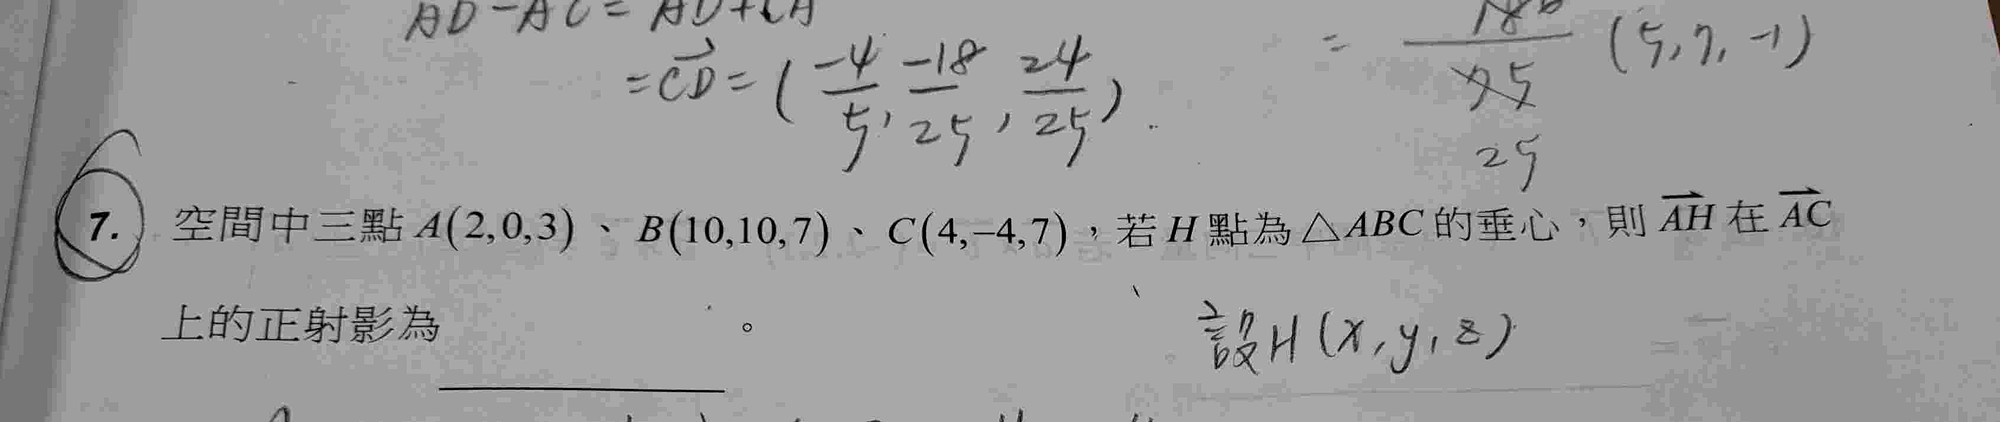 AD-AC = AD+CA
= CD = (-4/5, -18/25, 24/25)
= (5,7,-1)
25
7. 空間中三點 A(2,0,3)、B(10,10,7)、C(4,−4,7)，若 H 點為△ABC 的垂心，則 AH 在 AC
上的正射影為________。
設H(x,y,z)